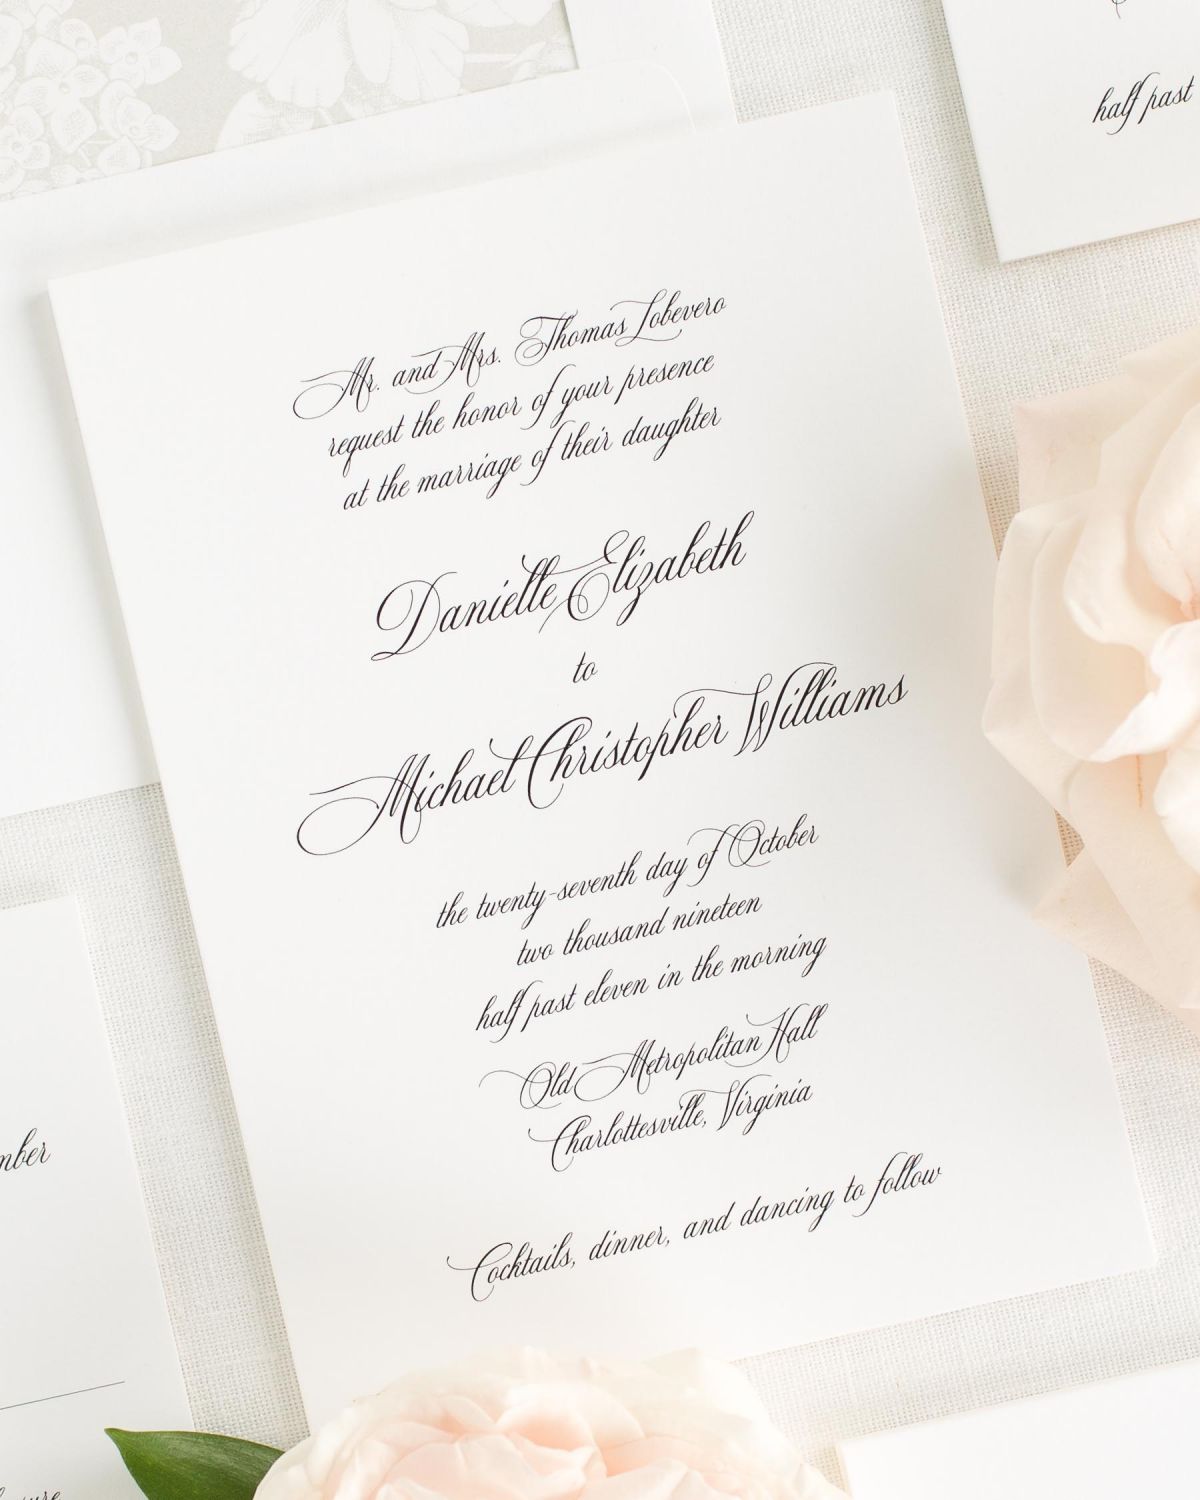 half past
Mr. and Mrs. Thomas Lobevero
request the honor of your presence
at the marriage of their daughter
Danielle Elizabeth
to
Michael Christopher Williams
the twenty-seventh day of October
two thousand nineteen
half past eleven in the morning
Old Metropolitan Hall
Charlottesville, Virginia
Cocktails, dinner, and dancing to follow
mber